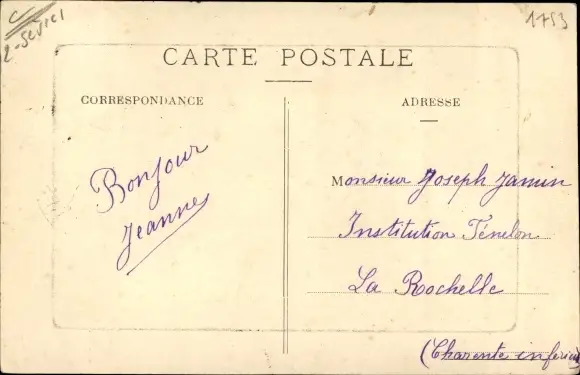 C
2-Sèvres
1753
CARTE POSTALE
CORRESPONDANCE
ADRESSE
Bonjour
Jeanne
Monsieur Joseph Jamin
Institution Fénelon
La Rochelle
(Charente inférieu